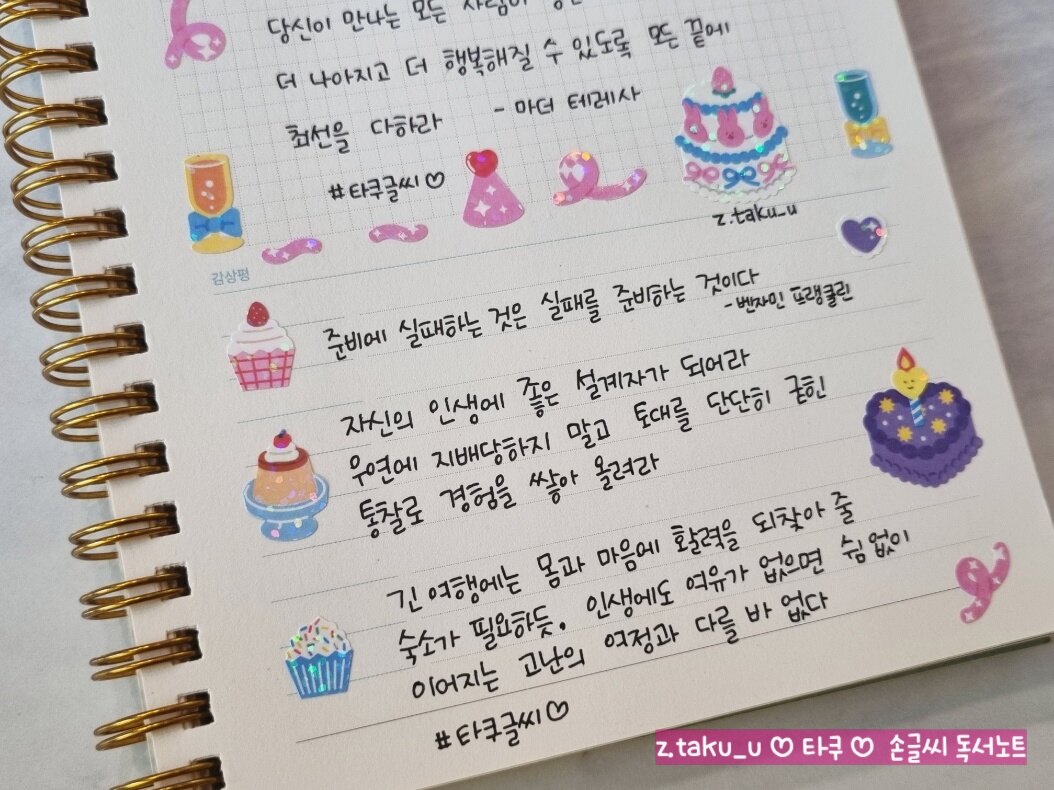 당신이 만나는 모든 사람이
더 나아지고 더 행복해질 수 있도록 모든 끝에
최선을 다하라 - 마더 테레사
#타쿠글씨♡
z.taku_u
감상평
준비에 실패하는 것은 실패를 준비하는 것이다
- 벤자민 프랭클린
자신의 인생에 좋은 설계자가 되어라
우연에 지배당하지 말고 토대를 단단히 굳힌
통찰로 경험을 쌓아 올려라
긴 여행에는 몸과 마음에 활력을 되찾아 줄
숙소가 필요하듯, 인생에도 여유가 없으면 쉼 없이
이어지는 고난의 여정과 다를 바 없다
#타쿠글씨♡
z.taku_u ♡ 타쿠 ♡ 손글씨 독서노트